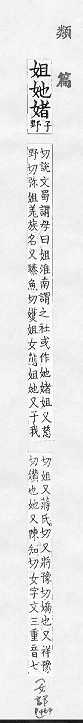 類篇
姐她媎
子野
切說文蜀謂母曰姐淮南謂之社或作她媎姐又慈
野切弥姐羌族名又臻魚切姐女態姐她又子我
切姐又蔣氏切又將豫切嬌也又祥豫
切也她又陳知切女字文三重音七